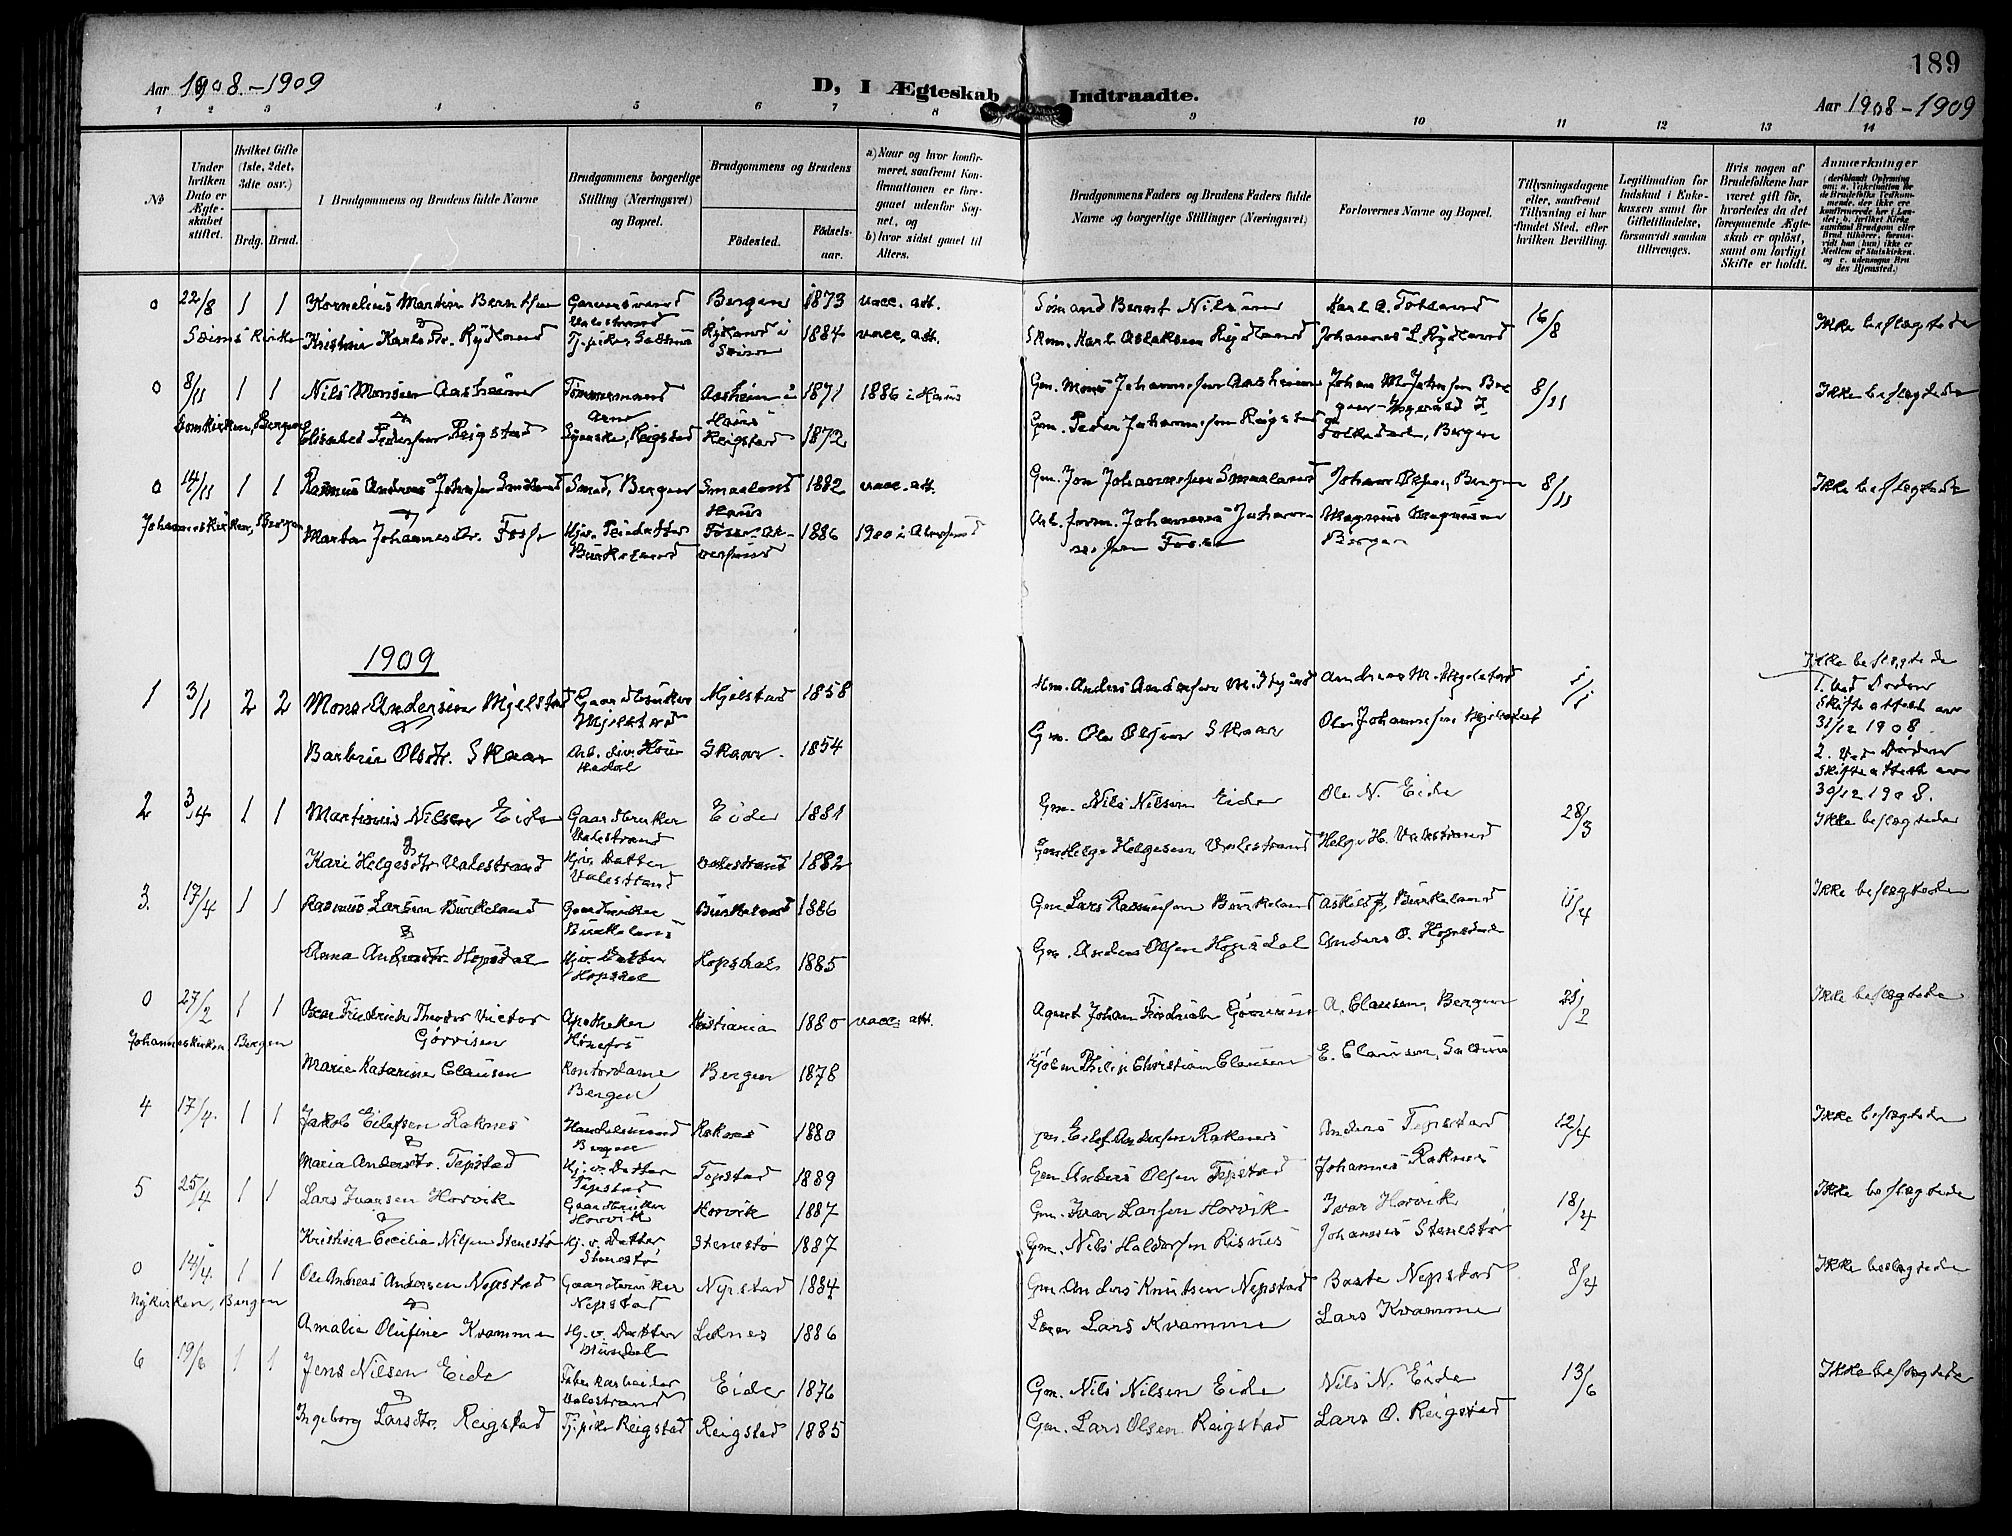 189
Aar 1908-1909
D, I Ægteskab Indtraadte.
Aar 1908-1909
1 2 3 4 5 6 7 8 9 10 11 12 13 14
No
Under hvilken Dato er Ægteskabet stiftet.
Hvilket Gifte (1ste, 2det, 3die osv.)
Brdg. Brud.
I Brudgommens og Brudens fulde Navne
Brudgommens borgerlige Stilling (Næringsvei) og Bopæl.
Brudgommens og Brudens
Fødested.
Fødselsaar.
a) Naar og hvor konfirmeret, saafremt Konfirmationen er foregaaet udenfor Sognet, og
b) hvor sidst gaaet til Alters.
Brudgommens Faders og Brudens Faders fulde Navne og borgerlige Stillinger (Næringsvei)
Forlovernes Navne og Bopæl.
Tillysningsdagene eller, saafremt Tillysning ei har fundet Sted, efter hvilken Bevilling.
Legitimation for Indskud i Enkekassen samt for Giftetilladelse, forsaavidt saadan tiltrænges.
Hvis nogen af Brudefolkene har været gift før, hvorledes da det foregaaende Ægteskab er opløst, samt om lovligt Skifte er holdt.
Anmærkninger
0 22/8 1 1 Kornelius Martin Berntsen Bergen 1873 vacc. att. Sømand Bernt Nilsen Karl A. Totland 16/8 Ikke beslægtede
Seims Kirke Kristine Karlsdtr. Rydland Rydland i Seim 1884 vacc. att. Karl Aslaksen Rydland Johannes L. Rydland
0 8/11 1 1 Nils Monsen Aasheim Tømmermand Arne Aasheim i Haus 1871 1886 i Haus Gm. Mons Johannessen Aasheim 8/11 Ikke beslægtede
Domkirken, Bergen Elisabed Pedersen Reigstad Syerske, Reigstad Reigstad 1872 Gm. Peder Johannessen Reigstad Bergen
0 14/11 1 1 Rasmus Andreas Smaaland Smed, Bergen Smaaland Haus 1882 vacc. att. Gm. Jon Johannessen Smaaland Johan Olsen, Bergen 8/11 Ikke beslægtede
Johanneskirken, Bergen Marta Johannesdtr. Fosse Burkeland 1886 1900 i Alversund Johannes Johannessen Fosse Magnus Magnusen Bergen
1909
1 3/1 2 2 Mons Andersen Mjelstad Gaardbruker Mjelstad Mjelstad 1858 Gm. Anders Andersen Mjelstad Andreas M. Mjelstad 1/1 Ikke beslægtede
1. ved Døden Skifteattest av 31/12 1908.
Barbru Olsdtr. Skaar Skaar 1854 Gm. Ole Olsen Skaar Ole Johannessen
2. Ved Døden Skifteattest av 30/12 1908.
2 3/4 1 1 Martinus Nilsen Eide Gaardbruker Valestrand Eide 1881 Gm. Nils Nilsen Eide Ole N. Eide 28/3 Ikke beslægtede
Kari Helgesdtr Valestrand Hjv. Datter Valestrand Valestrand 1882 Helge Helgesen Valestrand Helge H. Valestrand
3. 17/4 1 1 Rasmus Larsen Burkeland Gaardbruker Burkeland Burkeland 1886 Gm. Lars Rasmussen Burkeland Askild J. Burkeland 11/4 Ikke beslægtede
Anna Andersdtr. Hopsdal Hjv. Datter Hopsdal Hopsdal 1885 Gm. Anders Olsen Hopsdal Anders O. Hopsdal
0 27/2 1 1 Oscar Fredrick Theodor Victor Gørrisen Apotheker Hønefos Kristiania 1880 vacc. att. Agent Johan Fredrick Gørrisen A. Clausen, Bergen 21/2 Ikke beslægtede
Johanneskirken, Bergen Marie Katarine Clausen Kontordame Bergen Bergen 1878 Kjøbm Philip Christian Clausen E. Clausen
4 17/4. 1 1 Jakob Eilefsen Raknes Handelsmand Bergen Raknes 1880 Gm. Eilef Andersen Raknes Anders Tepstad 12/4 Ikke beslægtede
Maria Andersdtr. Tepstad Hj. v. Datter Tepstad Tepstad 1889 Gm. Anders Olsen Tepstad Johannes Raknes
5 25/4 1 1 Lars Ivarsen Horvik Gaardbruker Horvik Horvik 1887 Gm. Ivar Larsen Horvik Ivar Horvik 18/4 Ikke beslægtede
Kristina Cecilia Nilsen Stenestø Hj. v. Datter Stenestø Stenestø 1887 Gm. Nils Haldorsen Risnes Johannes Stenestø
0 14/4. 1 1 Ole Andreas Andersen Nepstad Gaardbruker Nepstad Nepstad 1884 Gm Anders Knutsen Nepstad Baste Nepstad 8/4 Ikke beslægtede
Nykirken, Bergen Amalia Olufine Kvamme Hj. v. Datter Leknes 1886 Lars Kvamme Lars Kvamme
6 19/6 1 1 Jens Nilsen Eide Fabrikarbeider Valestrand Eide 1876 Gm. Nils Nilsen Eide Nils N. Eide 13/6 Ikke beslægtede
Ingeborg Larsdtr. Reigstad Tj.pike Reigstad Reigstad 1885 Gm. Lars Olsen Reigstad Lars O. Reigstad